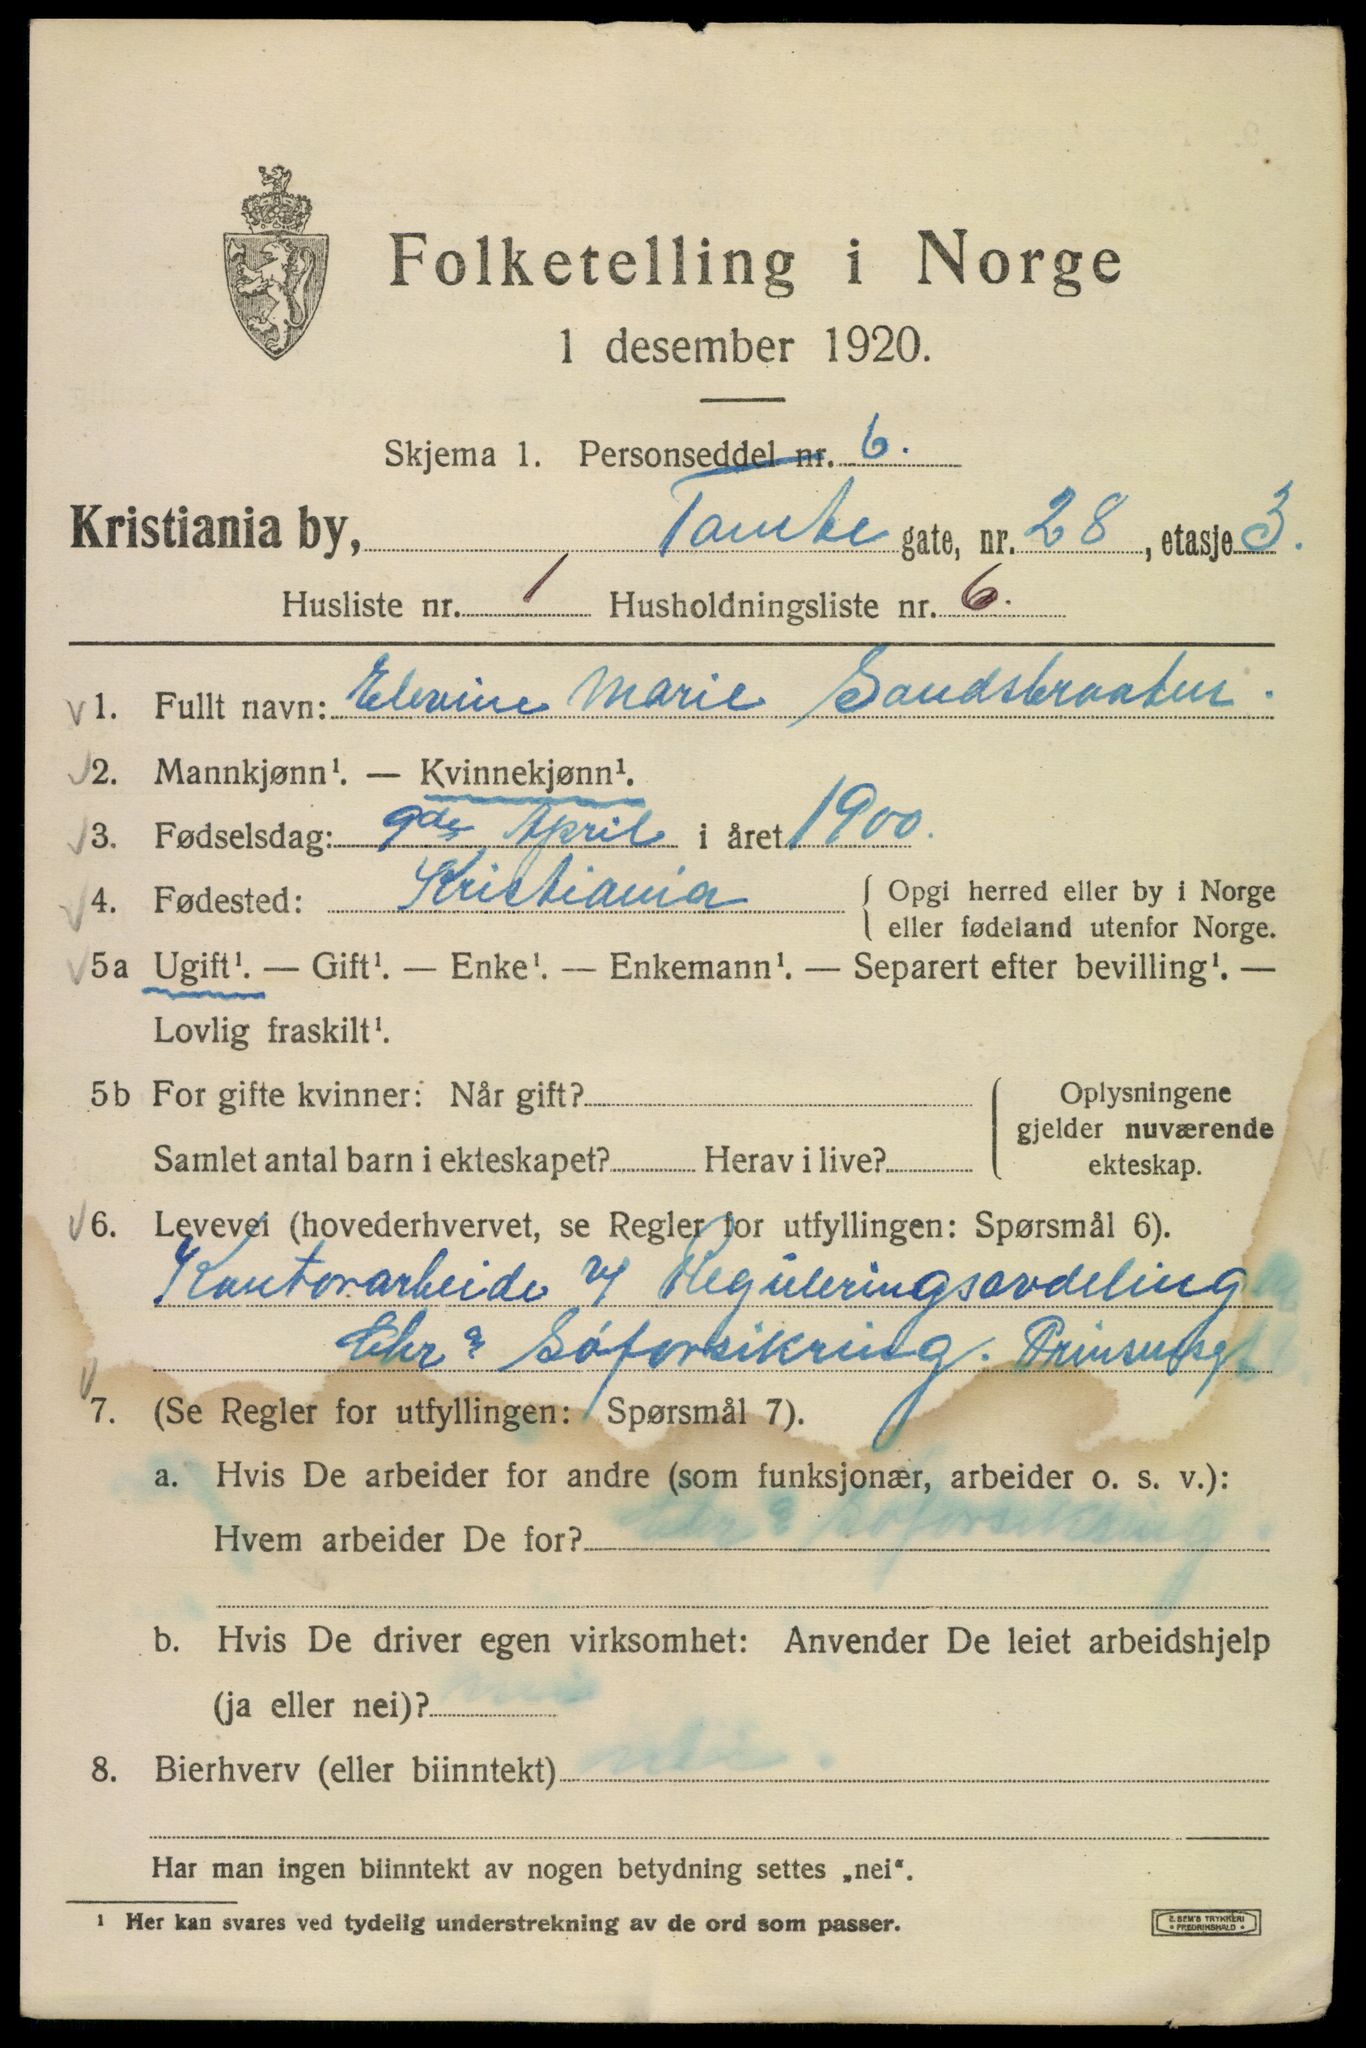 Folketelling i Norge
1 desember 1920.
Skjema 1. Personseddel nr. 6.
Kristiania by, Toucke gate, nr. 28, etasje 3.
Husliste nr. 1 Husholdningsliste nr. 6.
v 1. Fullt navn: Elevine Marie Sandsbraaten.
v 2. Mannkjønn¹. — Kvinnekjønn¹.
v 3. Fødselsdag: 9de April i året 1900.
v 4. Fødested: Kristiania { Opgi herred eller by i Norge
eller fødeland utenfor Norge.
v 5a Ugift¹. — Gift¹. — Enke¹. — Enkemann¹. — Separert efter bevilling¹. —
Lovlig fraskilt¹.
5b For gifte kvinner: Når gift? { Oplysningene
gjelder nuværende
Samlet antal barn i ekteskapet? Herav i live? ekteskap.
v 6. Levevei (hovederhvervet, se Regler for utfyllingen: Spørsmål 6).
Kontorarbeide v/ Reguleringsavdeling
Chra Søforsikring. Prinsensgt
v 7. (Se Regler for utfyllingen: Spørsmål 7).
a. Hvis De arbeider for andre (som funksjonær, arbeider o. s. v.):
Hvem arbeider De for? Chra Søforsikring.
b. Hvis De driver egen virksomhet: Anvender De leiet arbeidshjelp
(ja eller nei)? nei
8. Bierhverv (eller biinntekt) nei.
Har man ingen biinntekt av nogen betydning settes „nei“.
¹ Her kan svares ved tydelig understrekning av de ord som passer.
E. SEM'S TRYKKERI
* FREDRIKSHALD *